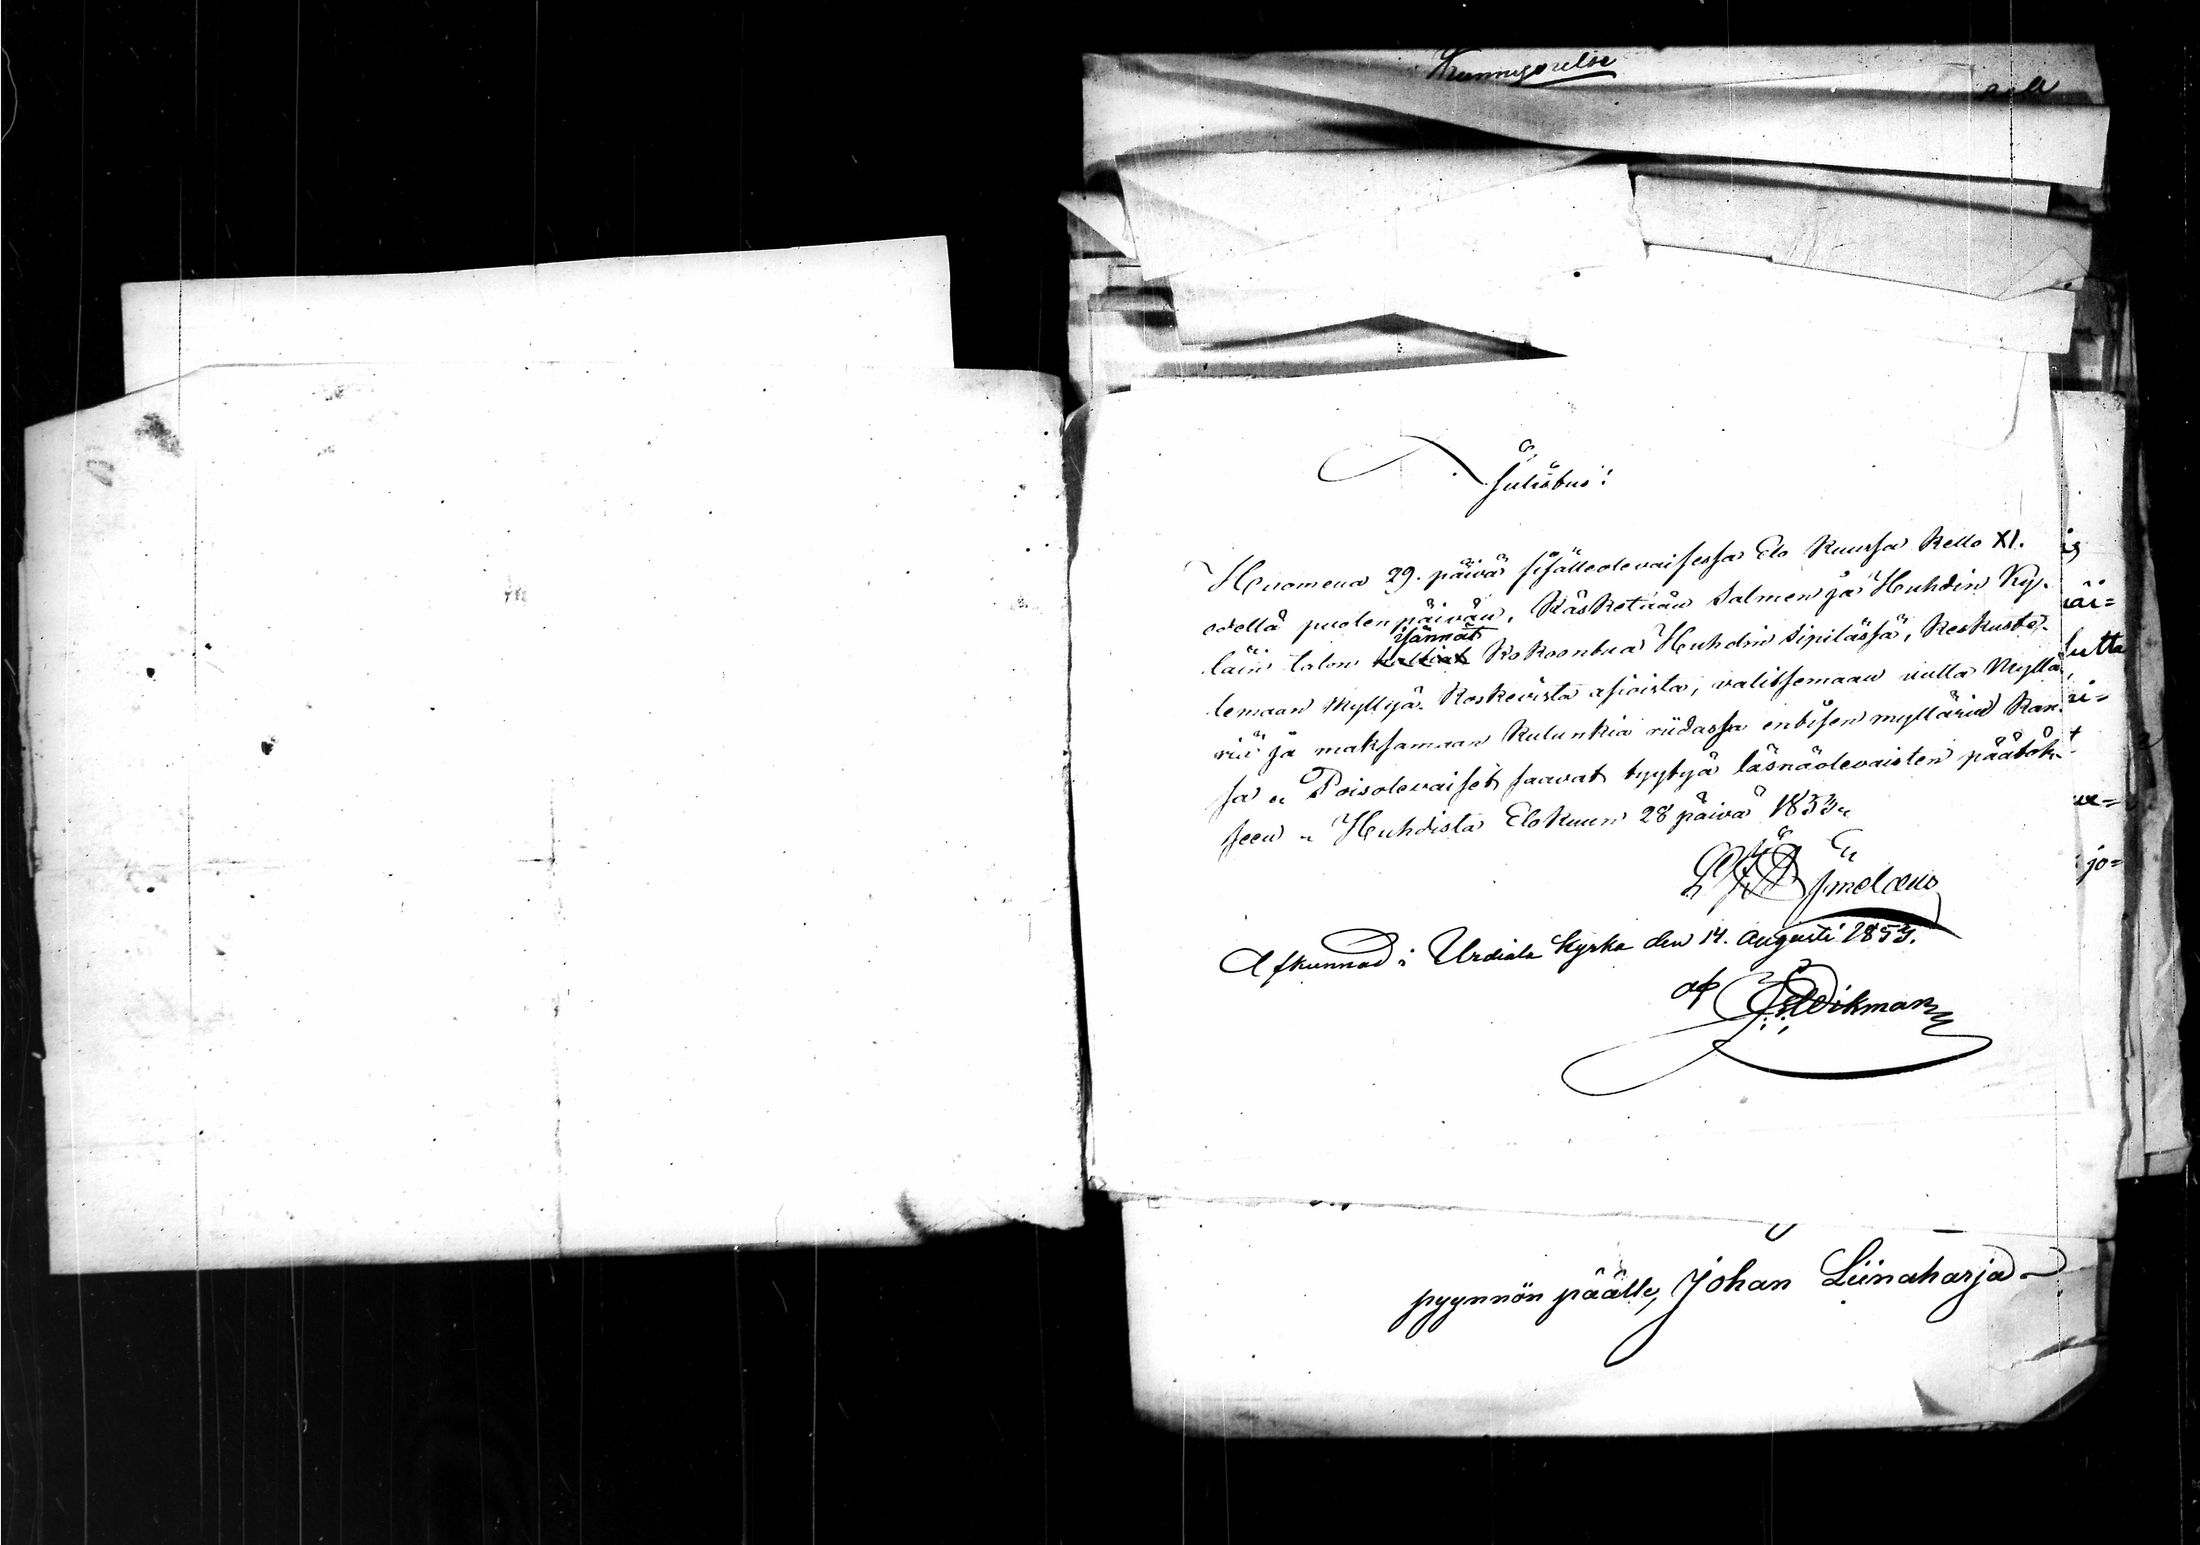 Kunngörelse
Julistus!
Huomena 29. päivä sisälleolevaisessa Elo Kuussa Kello XI.
edellä puolenpäivän, Käsketään Salmen ja Huhdin Ky-
isännät
läin talon Kokoontua Huhdin Sipilässä, Keskuste-
lemaan Myllyä Koskevista asioista, valitsemaan uutta Myllä-
riä ja maksamaan Kulunkia riidassa entisen myllärin Kan-
sa „ Poisolevaiset saavat tyytyä läsnäolevaisten päätök-
seen „ Huhdista Elokuun 28 päivä 1853„
Afkunnad i Urdiala Kyrka den 14. Augusti 1853.
af Wikman
pyynnön päälle, Johan Liinaharja